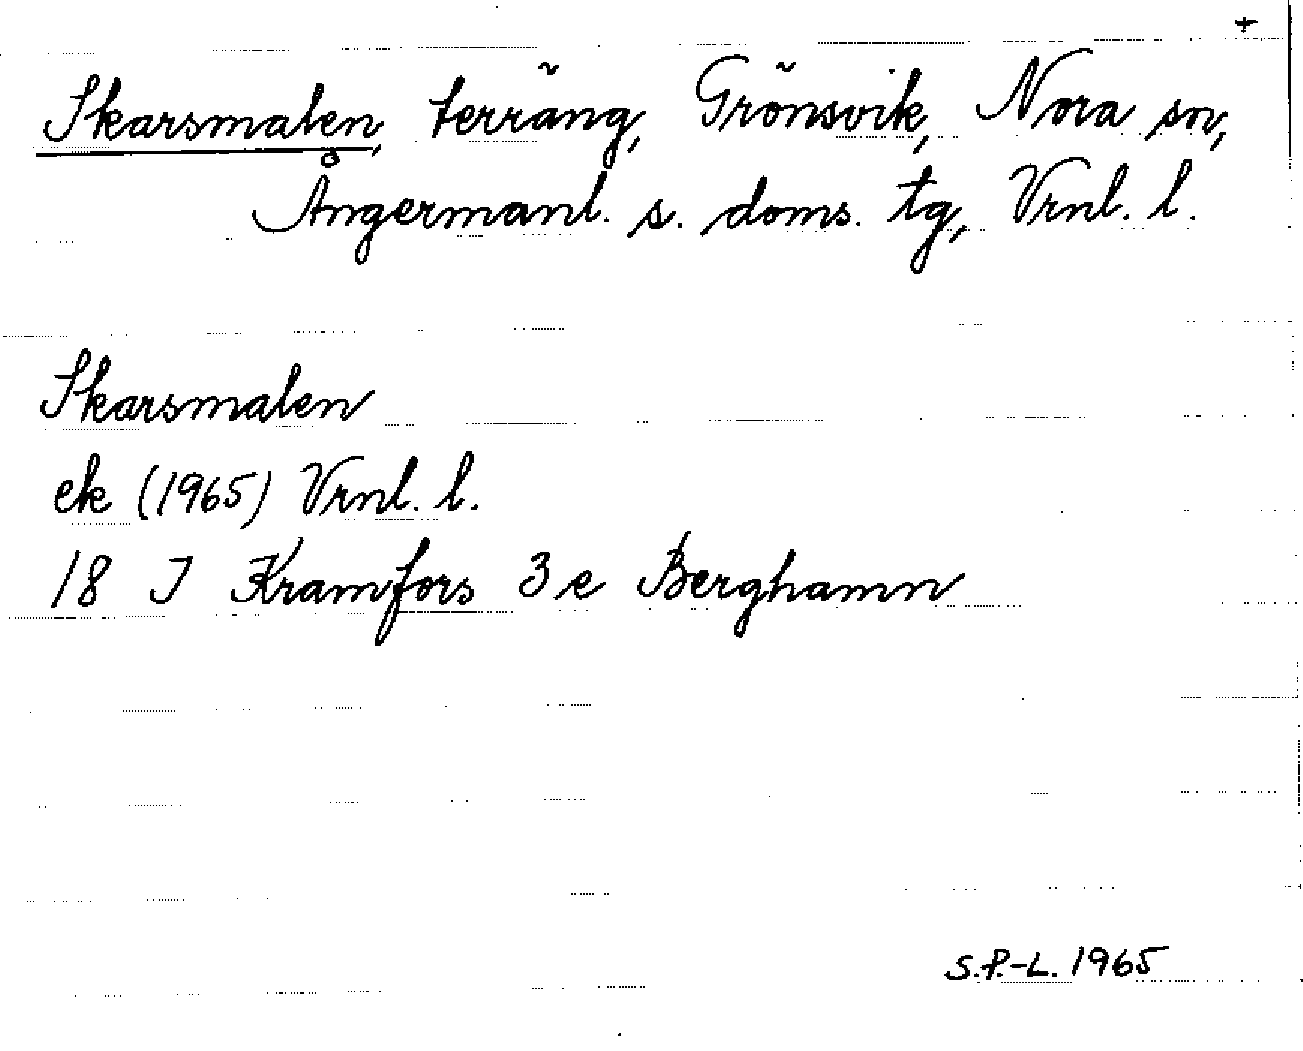 +
Skarsmalen, terräng, Grönsvik, Nora sn,
Ångermanl. s. doms. tg, Vrnl. l.
Skarsmalen
ek (1965) Vrnl. l.
18 I Kramfors 3 e Berghamn
S.P.-L. 1965